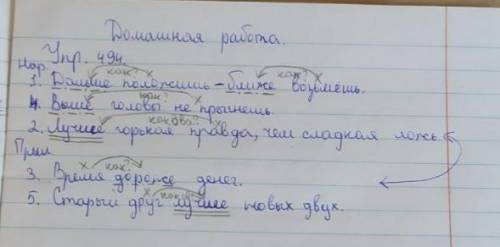 Домашная работа.
Упр. 494.
Нар.
как? х как? х
1. Дальше положишь - ближе возьмёшь.
как? х
4. Выше головы не прыгнешь.
какова? х
2. Лучше горькая правда, чем сладкая ложь.
Прил
х как?
3. Время дороже денег.
х как?
5. Старый друг лучше новых двух.